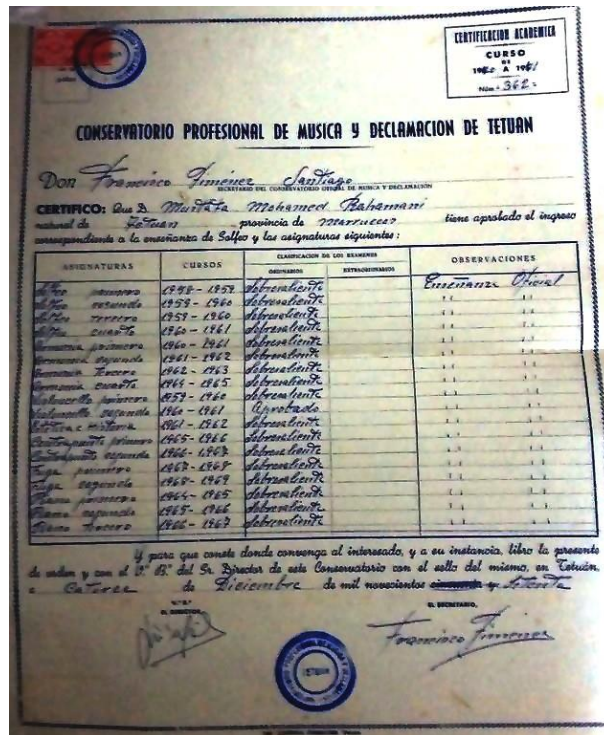 CERTIFICACION ACADEMICA
CURSO
DE
A
Núm. 362
CONSERVATORIO PROFESIONAL DE MUSICA Y DECLAMACION DE TETUAN
Don Francisco Jiménez Santiago
SECRETARIO DEL CONSERVATORIO OFICIAL DE MUSICA Y DECLAMACIÓN
CERTIFICO: Que D. Mustafa Mohamed Rahamani
natural de Tetuan provincia de Marruecos tiene aprobado el ingreso
correspondiente a la enseñanza de Solfeo y las asignaturas siguientes:
ASIGNATURAS CURSOS CLASIFICACION DE LOS EXAMENES OBSERVACIONES
ORDINARIOS EXTRAORDINARIOS
Solfeo primero 1958-1959 Sobresaliente Enseñanza Oficial
Solfeo segundo 1959-1960 Sobresaliente " "
Solfeo tercero 1959-1960 Sobresaliente " "
Solfeo cuarto 1960-1961 Sobresaliente " "
Armonia primero 1960-1961 Sobresaliente " "
Armonia segundo 1961-1962 Sobresaliente " "
Armonia tercero 1962-1963 Sobresaliente " "
Armonia cuarto 1964-1965 Sobresaliente " "
primero 1959-1960 Sobresaliente " "
segundo 1960-1961 Aprobado " "
Estética e Historia 1961-1962 Sobresaliente " "
Contrapunto primero 1965-1966 Sobresaliente " "
Contrapunto segundo 1966-1967 Sobresaliente " "
Fuga primero 1967-1968 Sobresaliente " "
Fuga segundo 1968-1969 Sobresaliente " "
Piano primero 1964-1965 Sobresaliente " "
Piano segundo 1965-1966 Sobresaliente " "
Piano tercero 1966-1967 Sobresaliente " "
Y para que conste donde convenga al interesado, y a su instancia, libro la presente
de orden y con el V.º B.º del Sr. Director de este Conservatorio con el sello del mismo, en Tetuán,
a Catorce de Diciembre de mil novecientos cincuenta y setenta
V.º B.º
EL DIRECTOR, EL SECRETARIO,
Francisco Jimenez
TETUAN